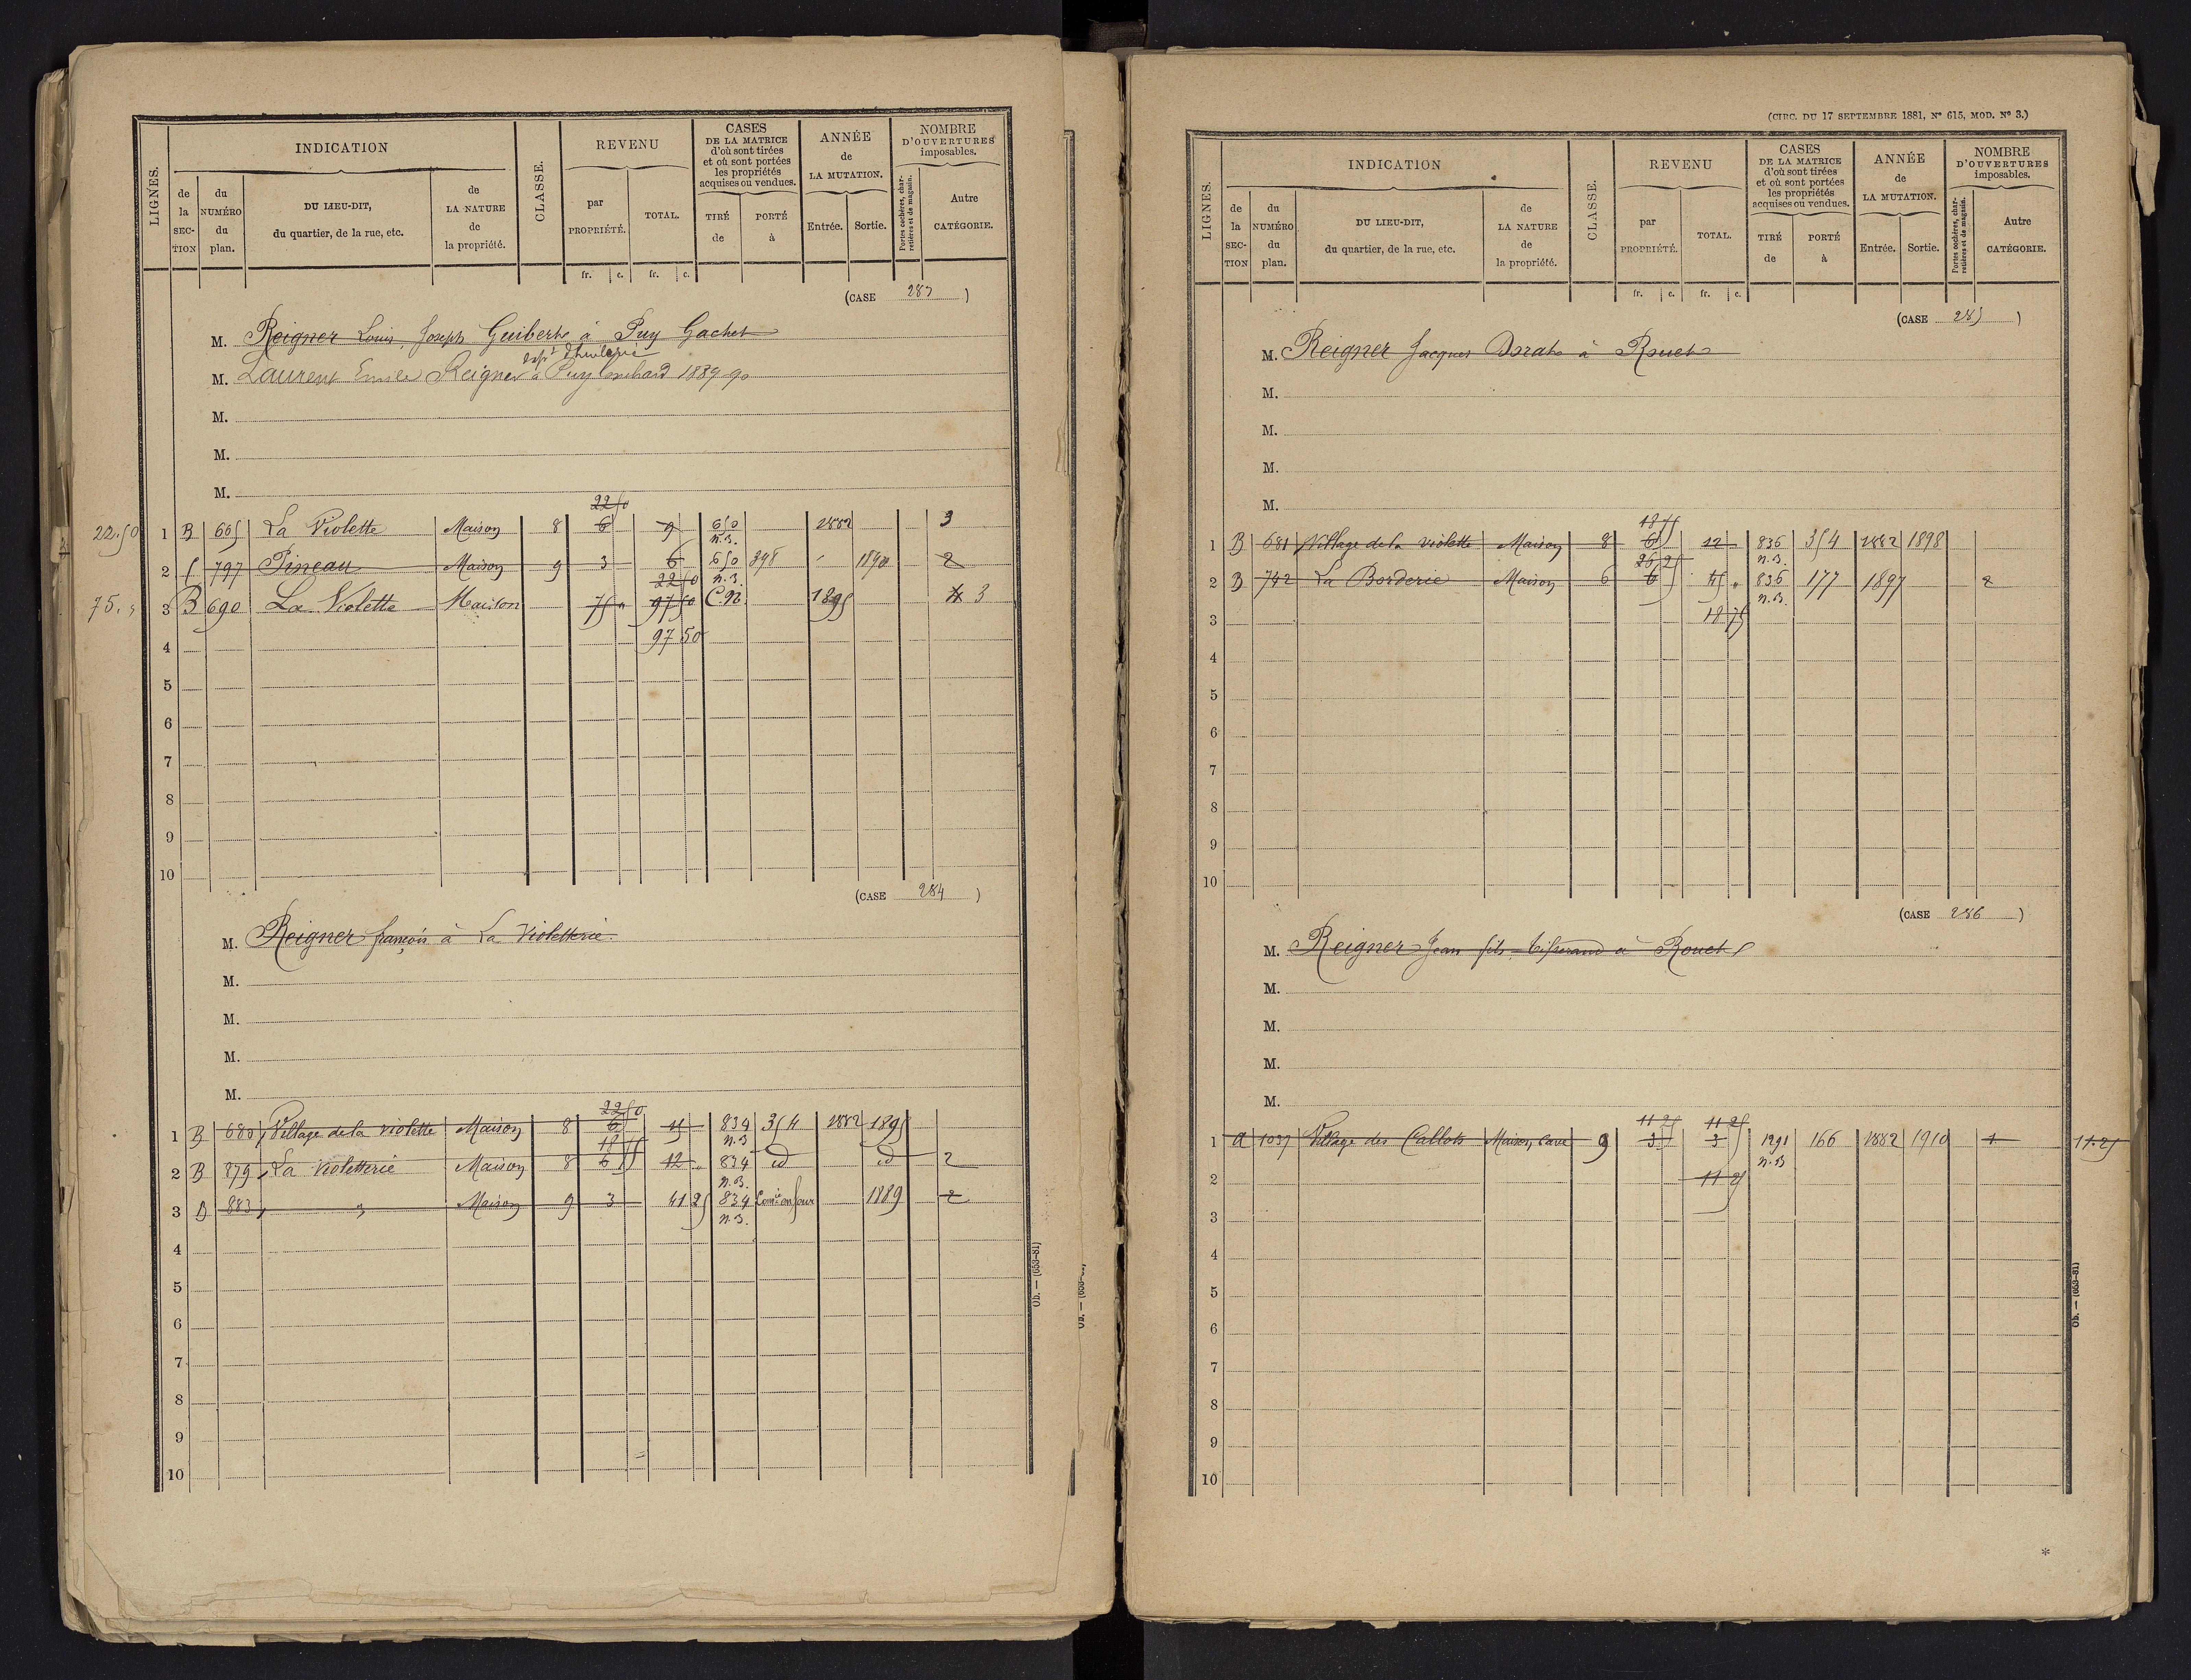 LIGNES.
INDICATION
de la SECTION
du NUMÉRO du plan.
DU LIEU-DIT, du quartier, de la rue, etc.
de LA NATURE de la propriété.
CLASSE.
REVENU
par PROPRIÉTÉ.
TOTAL.
fr. c. fr. c.
CASES DE LA MATRICE d'où sont tirées et où sont portées les propriétés acquises ou vendues.
TIRÉ de
PORTÉ à
ANNÉE de LA MUTATION.
Entrée. Sortie.
NOMBRE D'OUVERTURES imposables.
Portes cochères, charretières et de magasin.
Autre CATÉGORIE.
(CASE 283)
M. Reigner Louis Joseph Guibert à Puy Gachet
M. Laurent Emile Reigner à Puy 1889 90
M.
M.
M.
22 50
22.50 1 B 605 La Violette Maison 8 6 9 650 1882 3
n.B.
2 C 797 Pineau Maison 9 3 6 650 398 1890 2
22 50 n.B.
75. 3 B 690 La Violette Maison 75 97 50 C.N. 1895 3
4 97 50
5
6
7
8
9
10
(CASE 284)
M. Reigner françois à La Violetterie.
M.
M.
M.
M.
22 50
1 B 680 Village de la violette Maison 8 6 834 354 1882 1895
18 75 n.B
2 B 879 La Violetterie Maison 8 6 12 834 id id 2
n.B.
3 B 883 " Maison 9 3 41 25 834 1889 2
n.B.
4
5
6
7
8
9
10
Ob. — (653-81)
(CIRC. DU 17 SEPTEMBRE 1881, N° 615, MOD. N° 3.)
LIGNES.
INDICATION
de la SECTION
du NUMÉRO du plan.
DU LIEU-DIT, du quartier, de la rue, etc.
de LA NATURE de la propriété.
CLASSE.
REVENU
par PROPRIÉTÉ.
TOTAL.
fr. c. fr. c.
CASES DE LA MATRICE d'où sont tirées et où sont portées les propriétés acquises ou vendues.
TIRÉ de
PORTÉ à
ANNÉE de LA MUTATION.
Entrée. Sortie.
NOMBRE D'OUVERTURES imposables.
Portes cochères, charretières et de magasin.
Autre CATÉGORIE.
(CASE 285)
M. Reigner Jacques à Rouet
M.
M.
M.
M.
18 75
1 B 681 Village de la violette Maison 8 6 12 836 354 1882 1898
26 25 n.B.
2 B 742 La Borderie Maison 6 6 45 836 177 1897 2
n.B.
3 18 75
4
5
6
7
8
9
10
(CASE 286)
M. Reigner Jean fils tisserand à Rouet
M.
M.
M.
M.
11 25 11 25
1 A 1037 Village des Callots Maison, cave 9 3 3 1291 166 1882 1910 1 11.25
n.B
2 11 25
3
4
5
6
7
8
9
10
Ob. — (653-81)
*